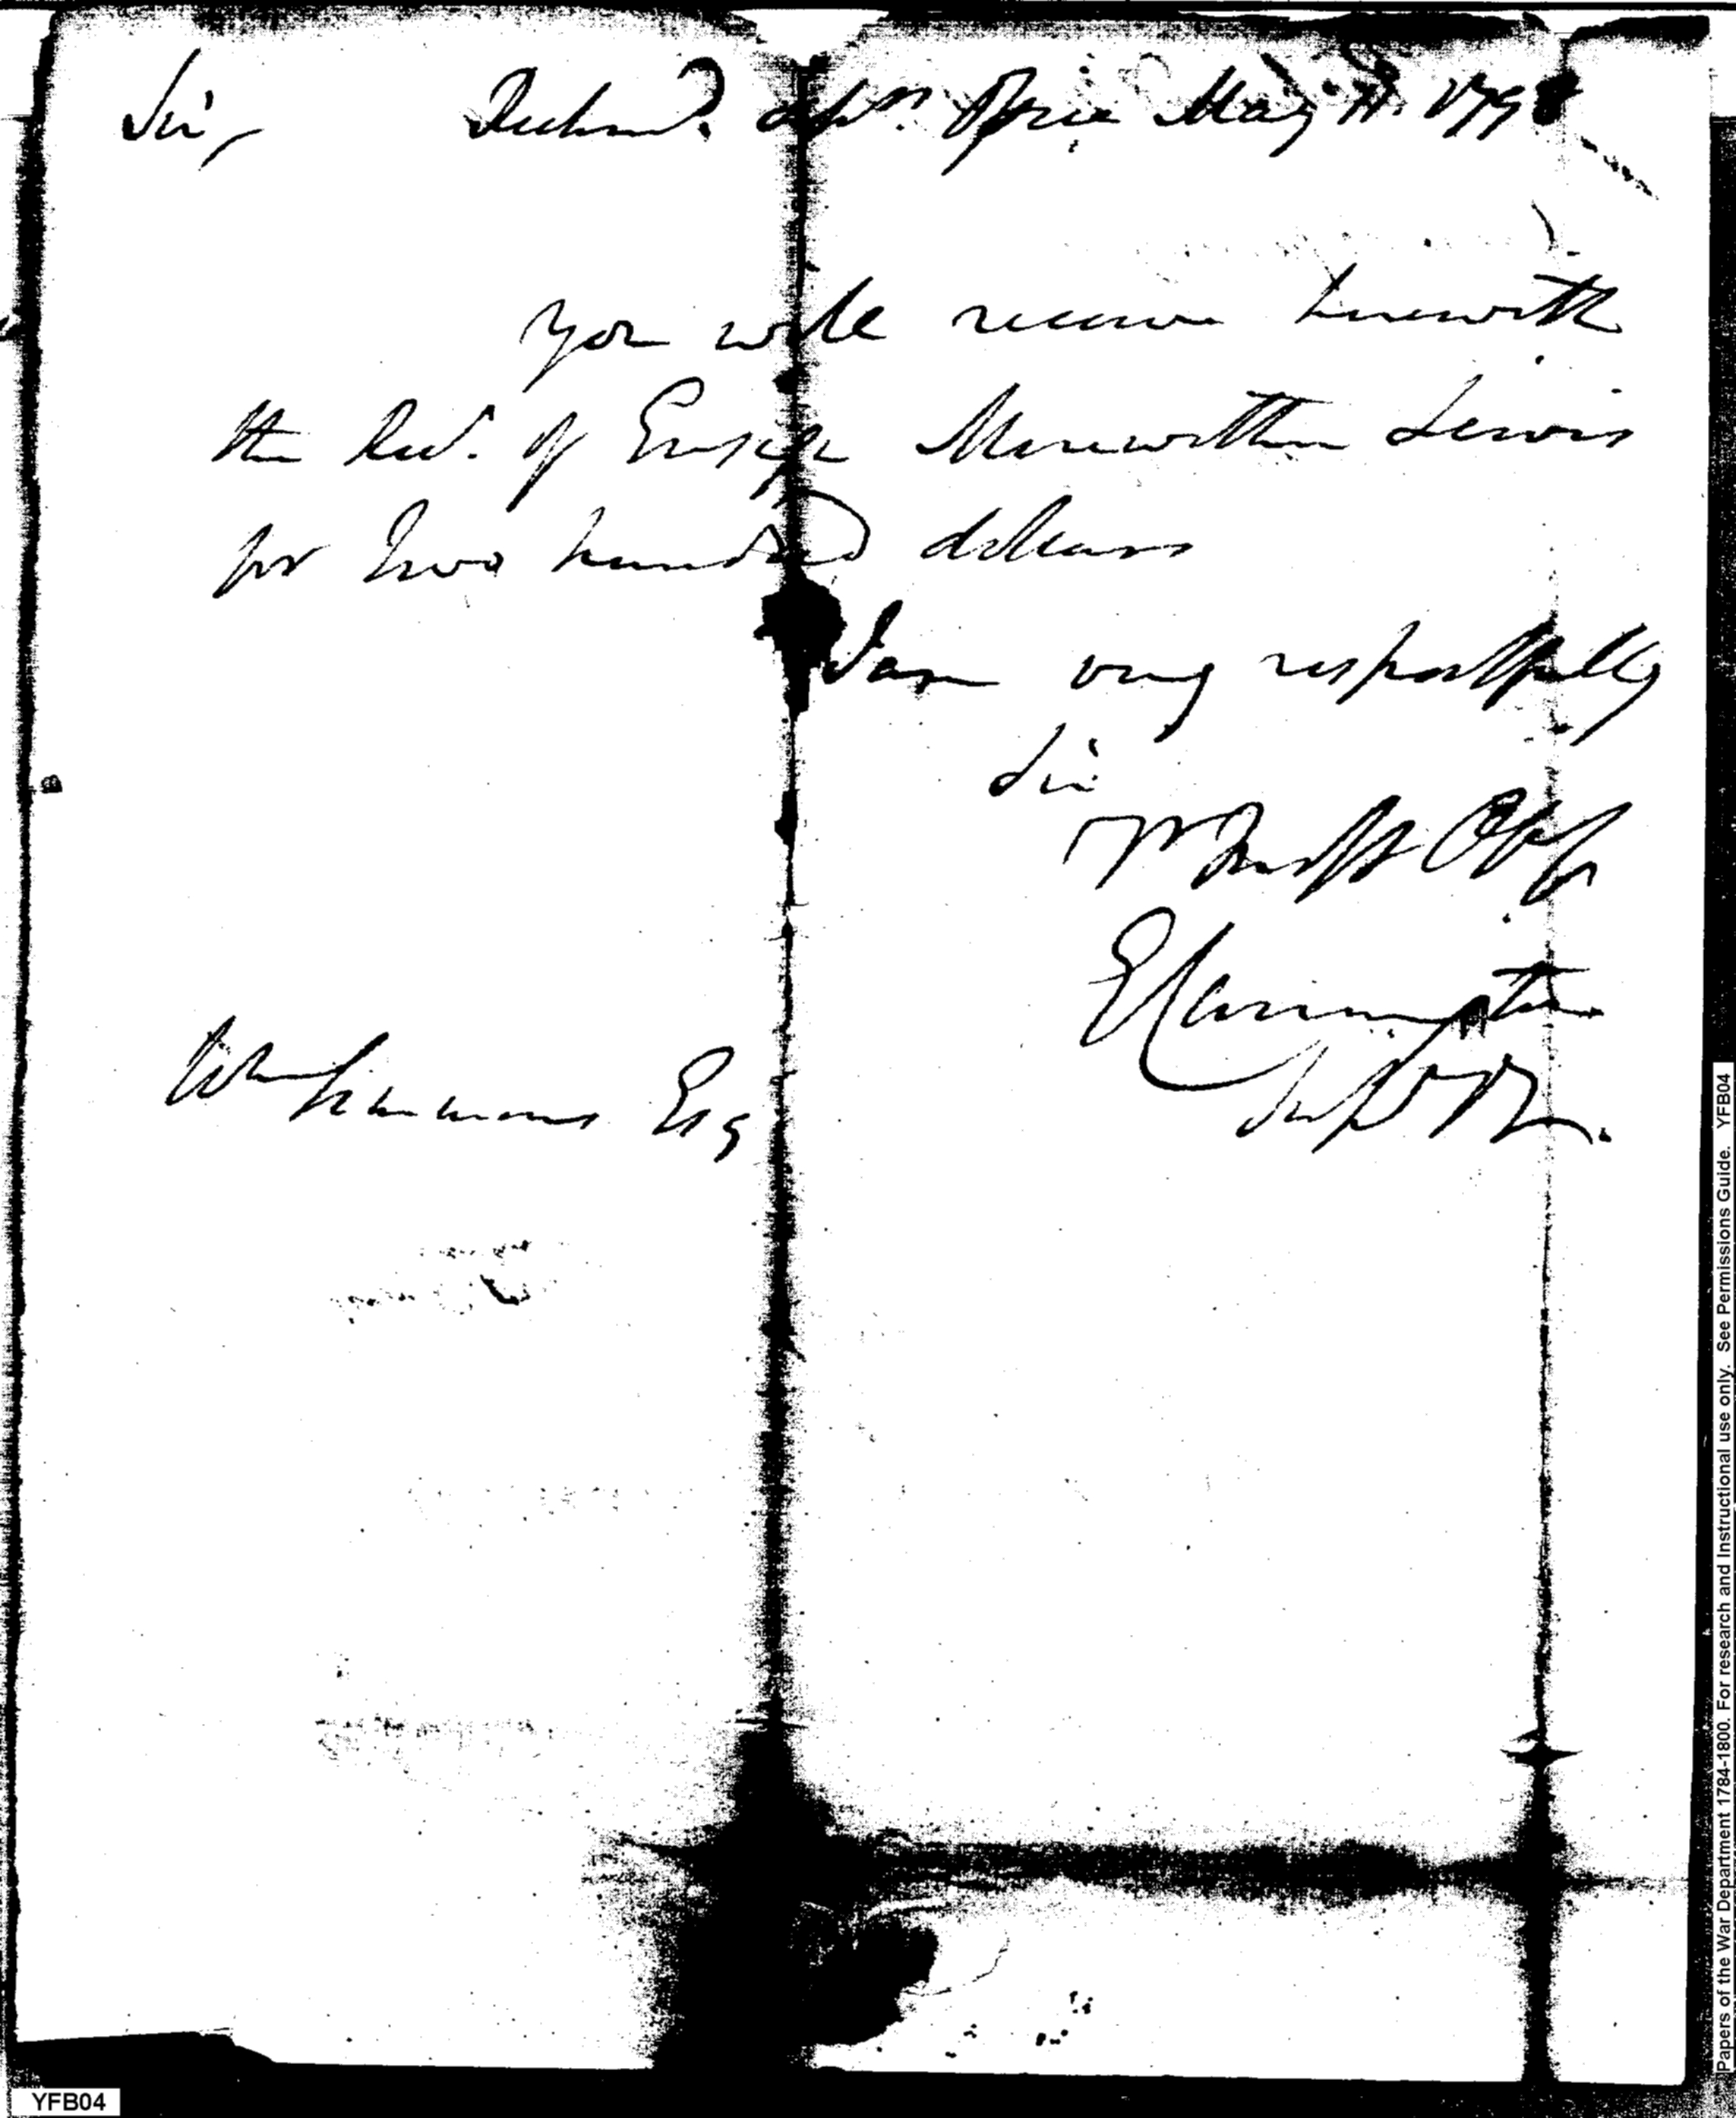 Sir, Richmd. Supvrs. Office May 11. 179
You will receive herewith
the Rect. of Ensign Merewether Lewis
for two hundred dollars
I am very respectfully
Sir
Yr Mo Obt
E Carrington
Supr D V
Wm Simmons Esq
YFB04
Papers of the War Department 1784-1800. For research and Instructional use only. See Permissions Guide. YFB04